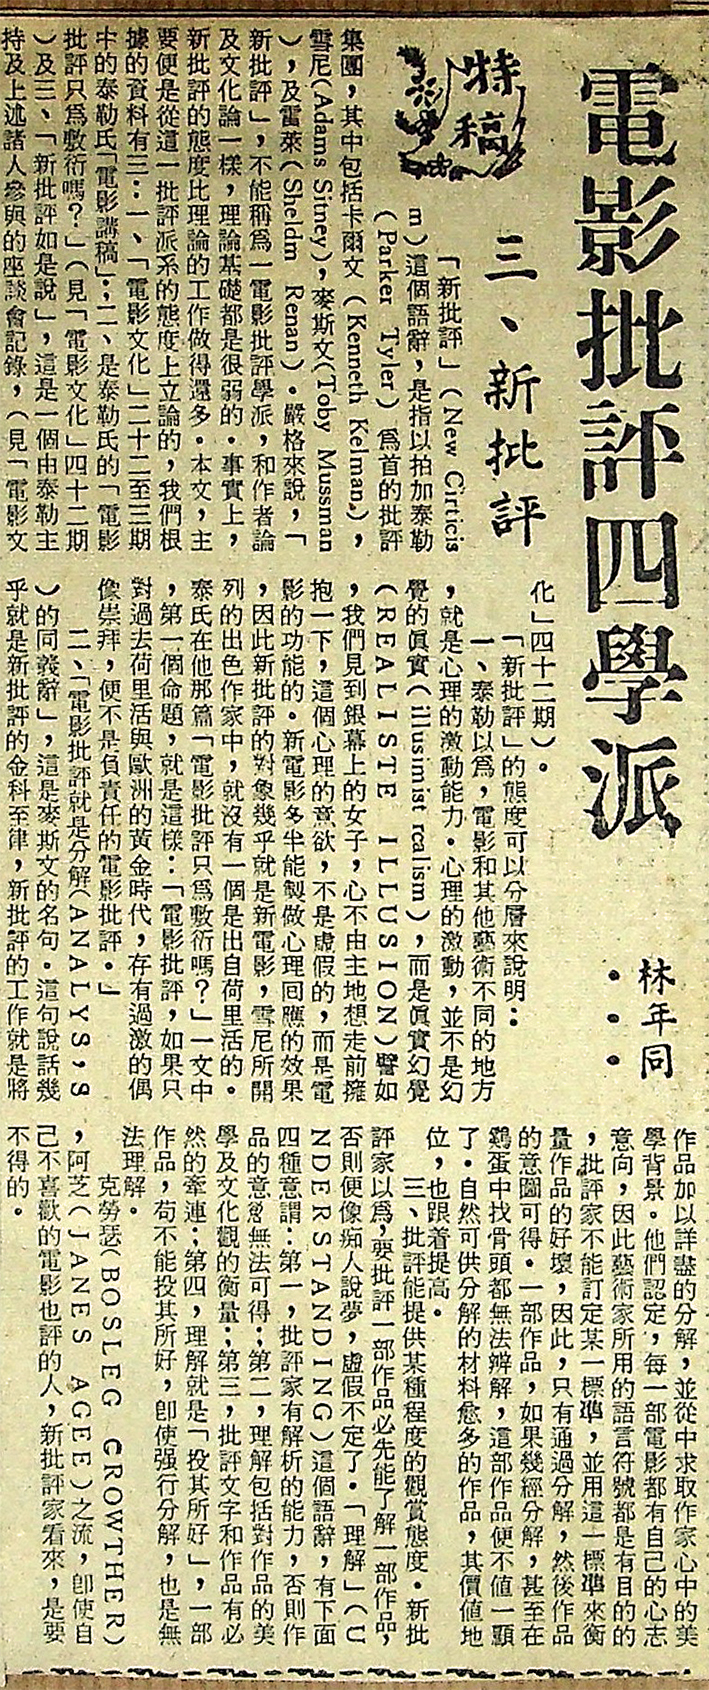 電影批評四學派
林年同
特稿
三、新批評
「新批評」(New Cirticis
m)這個語辭，是指以拍加泰勒
(Parker Tyler)為首的批評
集團，其中包括卡爾文(Kenneth Kelman,)，
雪尼(Adams Sitney)，麥斯文(Toby Mussman
)，及雷萊(Sheldm Renan)。嚴格來說，「
新批評」，不能稱爲一電影批評學派，和作者論
及文化論一樣，理論基礎都是很弱的。事實上，
新批評的態度比理論的工作做得還多。本文，主
要便是從這一批評派系的態度上立論的，我們根
據的資料有三：一、「電影文化」二十二至三期
中的泰勒氏「電影講稿」；二、是泰勒氏的「電影
批評只爲敷衍嗎？」(見「電影文化」四十二期
)及三、「新批評如是說」，這是一個由泰勒主
持及上述諸人參與的座談會記錄，(見「電影文
化」四十二期)。
「新批評」的態度可以分層來說明：
一、泰勒以爲，電影和其他藝術不同的地方
，就是心理的激動能力。心理的激動，並不是幻
覺的眞實(illusimist realism)，而是眞實幻覺
(REALISTE ILLUSION)譬如
，我們見到銀幕上的女子，心不由主地想走前擁
抱一下，這個心理的意欲，不是虛假的，而是電
影的功能的。新電影多半能製做心理回應的效果
，因此新批評的對象幾乎就是新電影，雪尼所開
列的出色作家中，就沒有一個是出自荷里活的。
泰氏在他那篇「電影批評只爲敷衍嗎？」一文中
，第一個命題，就是這樣：「電影批評，如果只
對過去荷里活與歐洲的黃金時代，存有過激的偶
像崇拜，便不是負責任的電影批評。」
二、「電影批評就是分解(ANALYS,S
)的同義辭」，這是麥斯文的名句。這句說話幾
乎就是新批評的金科至律，新批評的工作就是將
作品加以詳盡的分解，並從中求取作家心中的美
學背景。他們認定，每一部電影都有自己的心志
意向，因此藝術家所用的語言符號都是有目的的
，批評家不能訂定某一標準，並用這一標準來衡
量作品的好壞，因此，只有通過分解，然後作品
的意圖可得。一部作品，如果幾經分解，甚至在
鷄蛋中找骨頭都無法辨解，這部作品便不值一顧
了。自然可供分解的材料愈多的作品，其價值地
位，也跟着提高。
三、批評能提供某種程度的觀賞態度。新批
評家以爲，要批評一部作品必先能了解一部作品，
否則便像痴人說夢，虛假不定了。「理解」(U
NDERSTANDING)這個語辭，有下面
四種意謂：第一，批評家有解析的能力，否則作
品的意義無法可得；第二，理解包括對作品的美
學及文化觀的衡量；第三，批評文字和作品有必
然的牽連；第四，理解就是「投其所好」，一部
作品，苟不能投其所好，卽使强行分解，也是無
法理解。
克勞瑟(BOSLEG CROWTHER)
，阿芝(JANES AGEE)之流，卽使自
己不喜歡的電影也評的人，新批評家看來，是要
不得的。